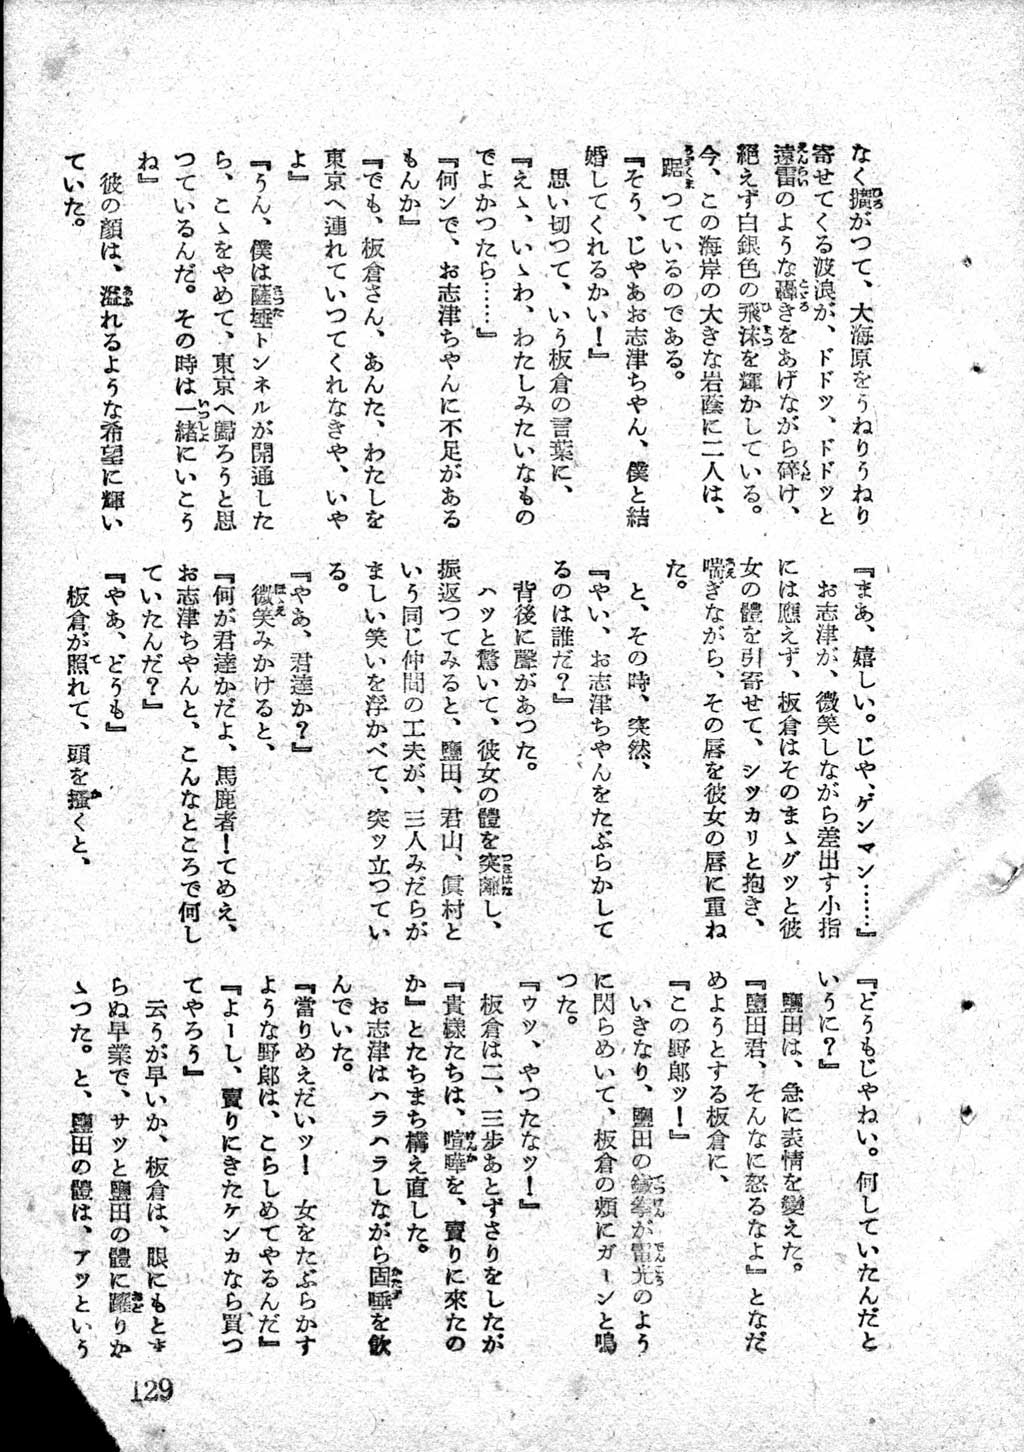 なく擴がつて、大海原をうねりうねり
寄せてくる波浪が、ドドツ、ドドツと
遠雷のような轟きをあげながら碎け、
絶えず白銀色の飛沫を輝かしている。
今、この海岸の大きな岩蔭に二人は、
踞つているのである。
『そう、じやあお志津ちやん、僕と結
婚してくれるかい！』
思い切つて、いう板倉の言葉に、
『えゝ、いゝわ、わたしみたいなもの
でよかつたら……』
『何ンで、お志津ちやんに不足がある
もんか』
『でも、板倉さん、あんた、わたしを
東京へ連れていつてくれなきや、いや
よ』
『うん、僕は薩埵トンネルが開通した
ら、こゝをやめて、東京へ歸ろうと思
つているんだ。その時は一緒にいこう
ね』
彼の顔は、溢れるような希望に輝い
ていた。
『まあ、嬉しい。じや、ゲンマン……』
お志津が、微笑しながら差出す小指
には應えず、板倉はそのまゝグツと彼
女の體を引寄せて、シツカリと抱き、
喘ぎながら、その唇を彼女の唇に重ね
た。
と、その時、突然、
『やい、お志津ちやんをたぶらかして
るのは誰だ？』
背後に聲があつた。
ハツと驚いて、彼女の體を突離し、
振返つてみると、鹽田、君山、眞村と
いう同じ仲間の工夫が、三人みだらが
ましい笑いを浮かべて、突ッ立つてい
る。
『やあ、君達か？』
微笑みかけると、
『何が君達かだよ、馬鹿者！てめえ、
お志津ちやんと、こんなところで何し
ていたんだ？』
『やあ、どうも』
板倉が照れて、頭を搔くと、
『どうもじやねい。何していたんだと
いうに？』
鹽田は、急に表情を變えた。
『鹽田君、そんなに怒るなよ』となだ
めようとする板倉に、
『この野郎ッ！』
いきなり、鹽田の鐵拳が電光のよう
に閃らめいて、板倉の頬にガーンと鳴
つた。
『ウツ、やつたなッ！』
板倉は二、三歩あとずさりをしたが
『貴樣たちは、喧嘩を、賣りに來たの
か』とたちまち構え直した。
お志津はハラハラしながら固唾を飮
んでいた。
『當りめえだいッ！　女をたぶらかす
ような野郎は、こらしめてやるんだ』
『よーし、賣りにきたケンカなら、買つ
てやろう』
云うが早いか、板倉は、眼にもとま
らぬ早業で、サツと鹽田の體に躍りか
ゝつた。と、鹽田の體は、アツという
129